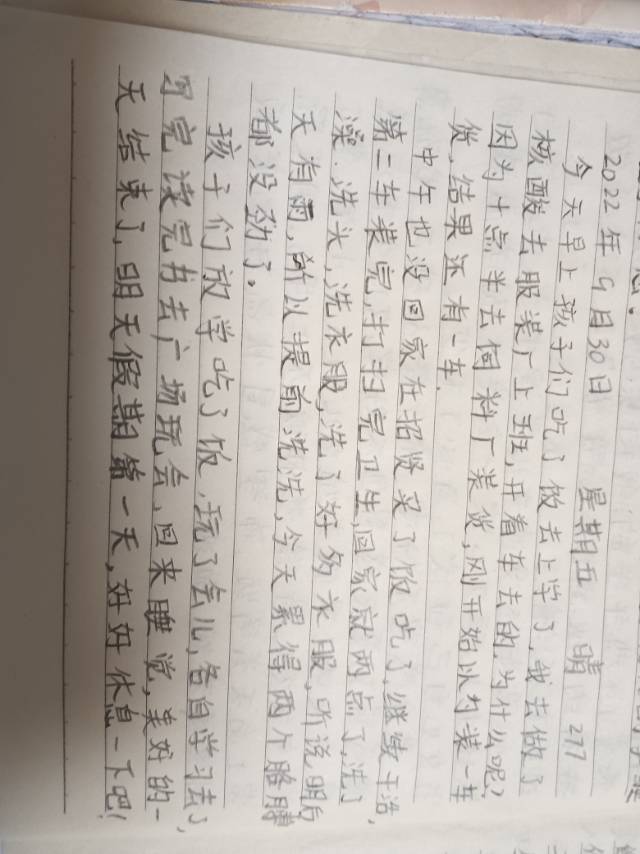 2022年9月30日 星期五 晴 277
今天早上孩子们吃了饭去上学了,我去做了
核酸去服装厂上班,开着车去的,为什么呢?
因为十点半去饲料厂装货,刚开始以为装一车
货,结果还有一车.
中午也没回家在招贤买了饭吃了,继续干活,
第二车装完,打扫完卫生,回家就两点了,洗了
澡.洗头,洗衣服,洗了好多衣服,听说明后
天有雨,所以提前洗洗,今天累得两个胳膊
都没劲了。
孩子们放学吃了饭,玩了会儿,各自学习去了,
写完读完书去广场玩会,回来睡觉,美好的一
天结束了,明天假期第一天,好好休息一下吧!